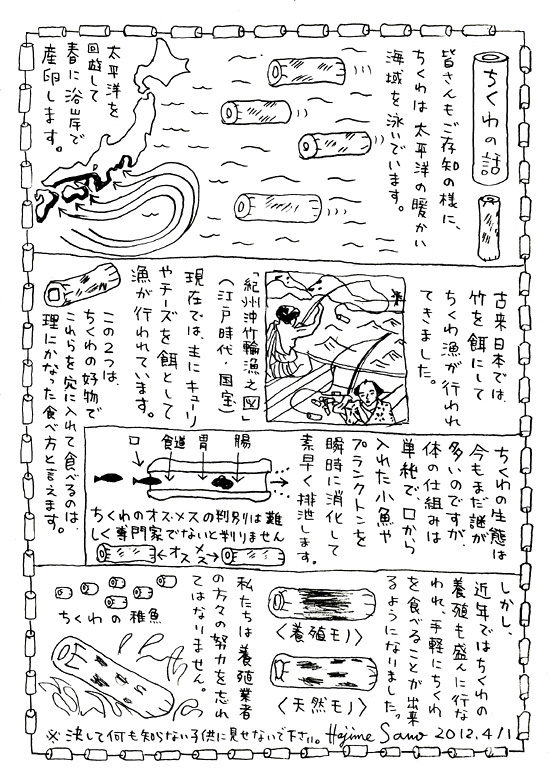 ちくわの話
皆さんもご存知の様に、
ちくわは太平洋の暖かい
海域を泳いでいます。
太平洋を
回遊して
春に沿岸で
産卵します。
古来日本では、
竹を餌にして
ちくわ漁が行われ
てきました。
「紀州沖竹輪漁之図」
(江戸時代・国宝)
現在では、主にキューリ
やチーズを餌として
漁が行われています。
この2つは、
ちくわの好物で
これらを穴に入れて食べるのは、
理にかなった食べ方と言えます。
ちくわの生態は
今もまだ謎が
多いのですが、
体の仕組みは
単純で、口から
入れた小魚や
プランクトンを
瞬時に消化して
素早く排泄します。
口
食道
胃
腸
ちくわのオス・メスの判別は難
しく専門家でないと判りません
←オス
メス→
しかし、
近年ではちくわの
養殖も盛んに行な
われ、手軽にちくわ
を食べることが出来
るようになりました。
〈養殖モノ〉
〈天然モノ〉
私たちは養殖業者
の方々の努力を忘れ
てはなりません。
ちくわの稚魚
※決して何も知らない子供に見せないで下さい。 Hajime Sano 2012.4/1